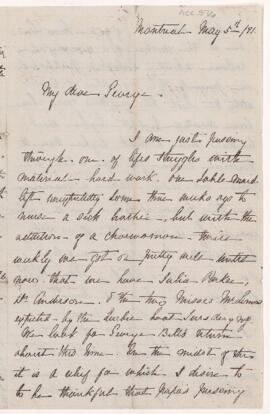 Montreal May 5th /81.
My dear George.
I am just passing
through one of life's struggles with
material hard work. our table maid
left some three weeks ago to
nurse a sick mother, but with the
addition of a charwoman thrice
weekly we got on pretty well until
now that we have Julia Parke,
Dr Anderson. & the two Misses
expected by the Quebec boat Tuesday
We look for George Bell's return
about this time. In the midst of this
it is a relief for which I desire to
to be thankful that Papa's